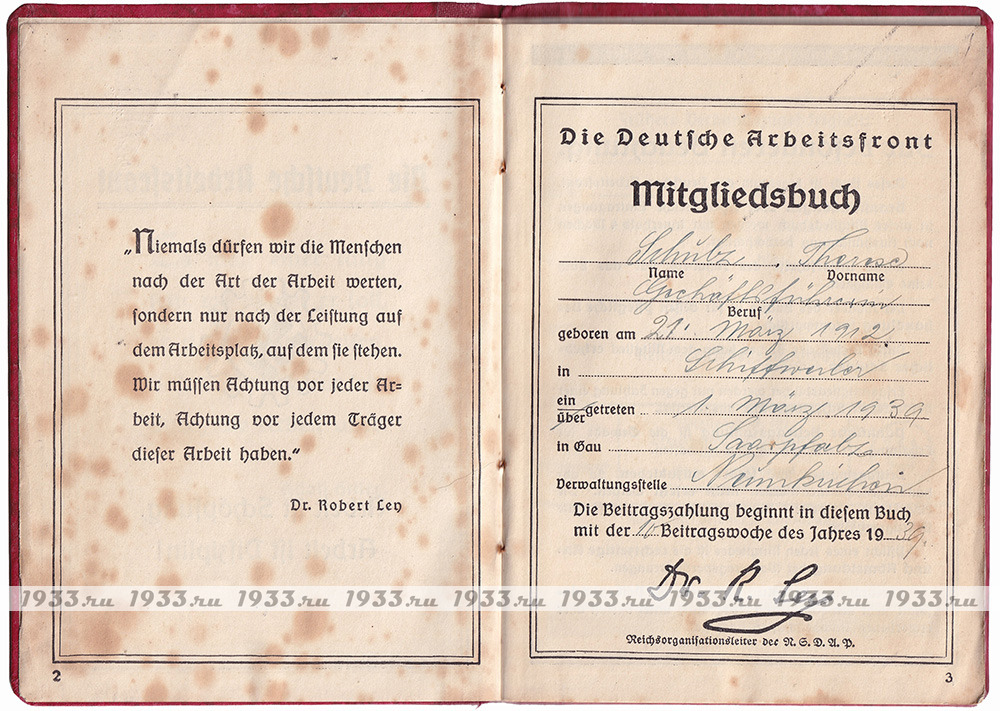 „Niemals dürfen wir die Menschen
nach der Art der Arbeit werten,
sondern nur nach der Leistung auf
dem Arbeitsplatz, auf dem sie stehen.
Wir müssen Achtung vor jeder Ar=
beit, Achtung vor jedem Träger
dieser Arbeit haben.“
Dr. Robert Ley
2
Die Deutsche Arbeitsfront
Mitgliedsbuch
Schulz, Therese
Name Vorname
Geschäftsführerin
Beruf
geboren am 21. März 1912
in Schiffweiler
ein
über getreten 1. März 1939
in Gau Saarpfalz
Verwaltungsstelle Neunkirchen
Die Beitragszahlung beginnt in diesem Buch
mit der 10 Beitragswoche des Jahres 19 39.
Dr. R. Ley
Reichsorganisationsleiter der N. S. D. A. P.
3
1933.ru 1933.ru 1933.ru 1933.ru 1933.ru 1933.ru 1933.ru 1933.ru 1933.ru